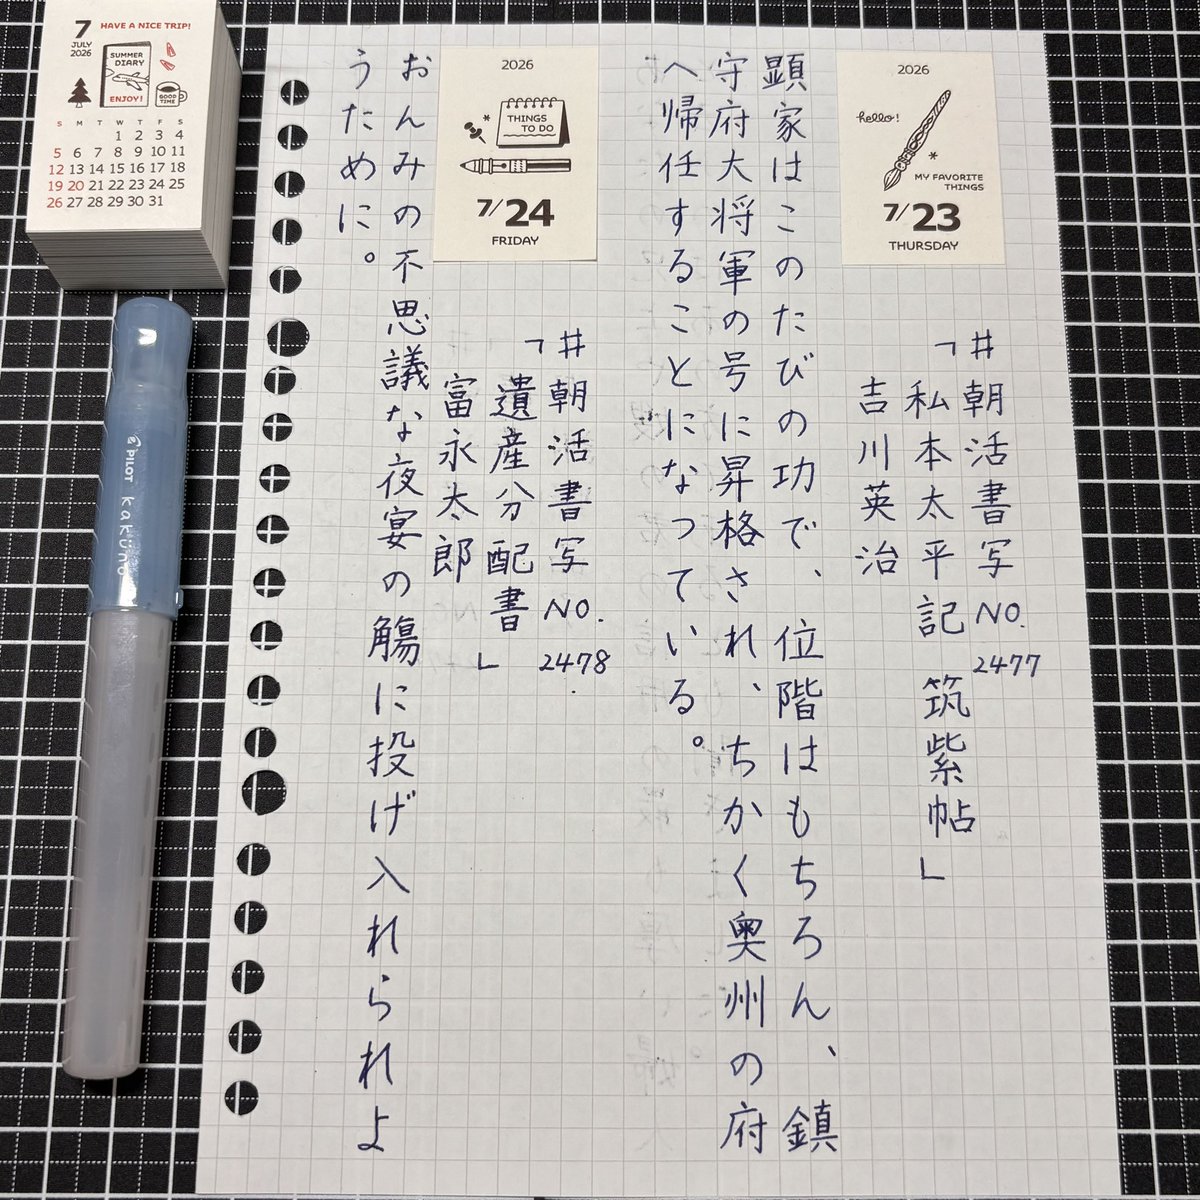 7
JULY
2026
HAVE A NICE TRIP!
SUMMER
DIARY
ENJOY!
GOOD
TIME
S M T W T F S
1 2 3 4
5 6 7 8 9 10 11
12 13 14 15 16 17 18
19 20 21 22 23 24 25
26 27 28 29 30 31
2026
hello!
MY FAVORITE
THINGS
7/23
THURSDAY
#朝活書写NO.2477
「私本太平記 筑紫帖」
吉川英治
顕家はこのたびの功で、位階はもちろん、鎮
守府大将軍の号に昇格され、ちかく奥州の府
へ帰任することになっている。
2026
THINGS
TO DO
7/24
FRIDAY
#朝活書写NO.2478
「遺産分配書」
富永太郎
おんみの不思議な夜宴の觴に投げ入れられよ
うために。
PILOT kaküno